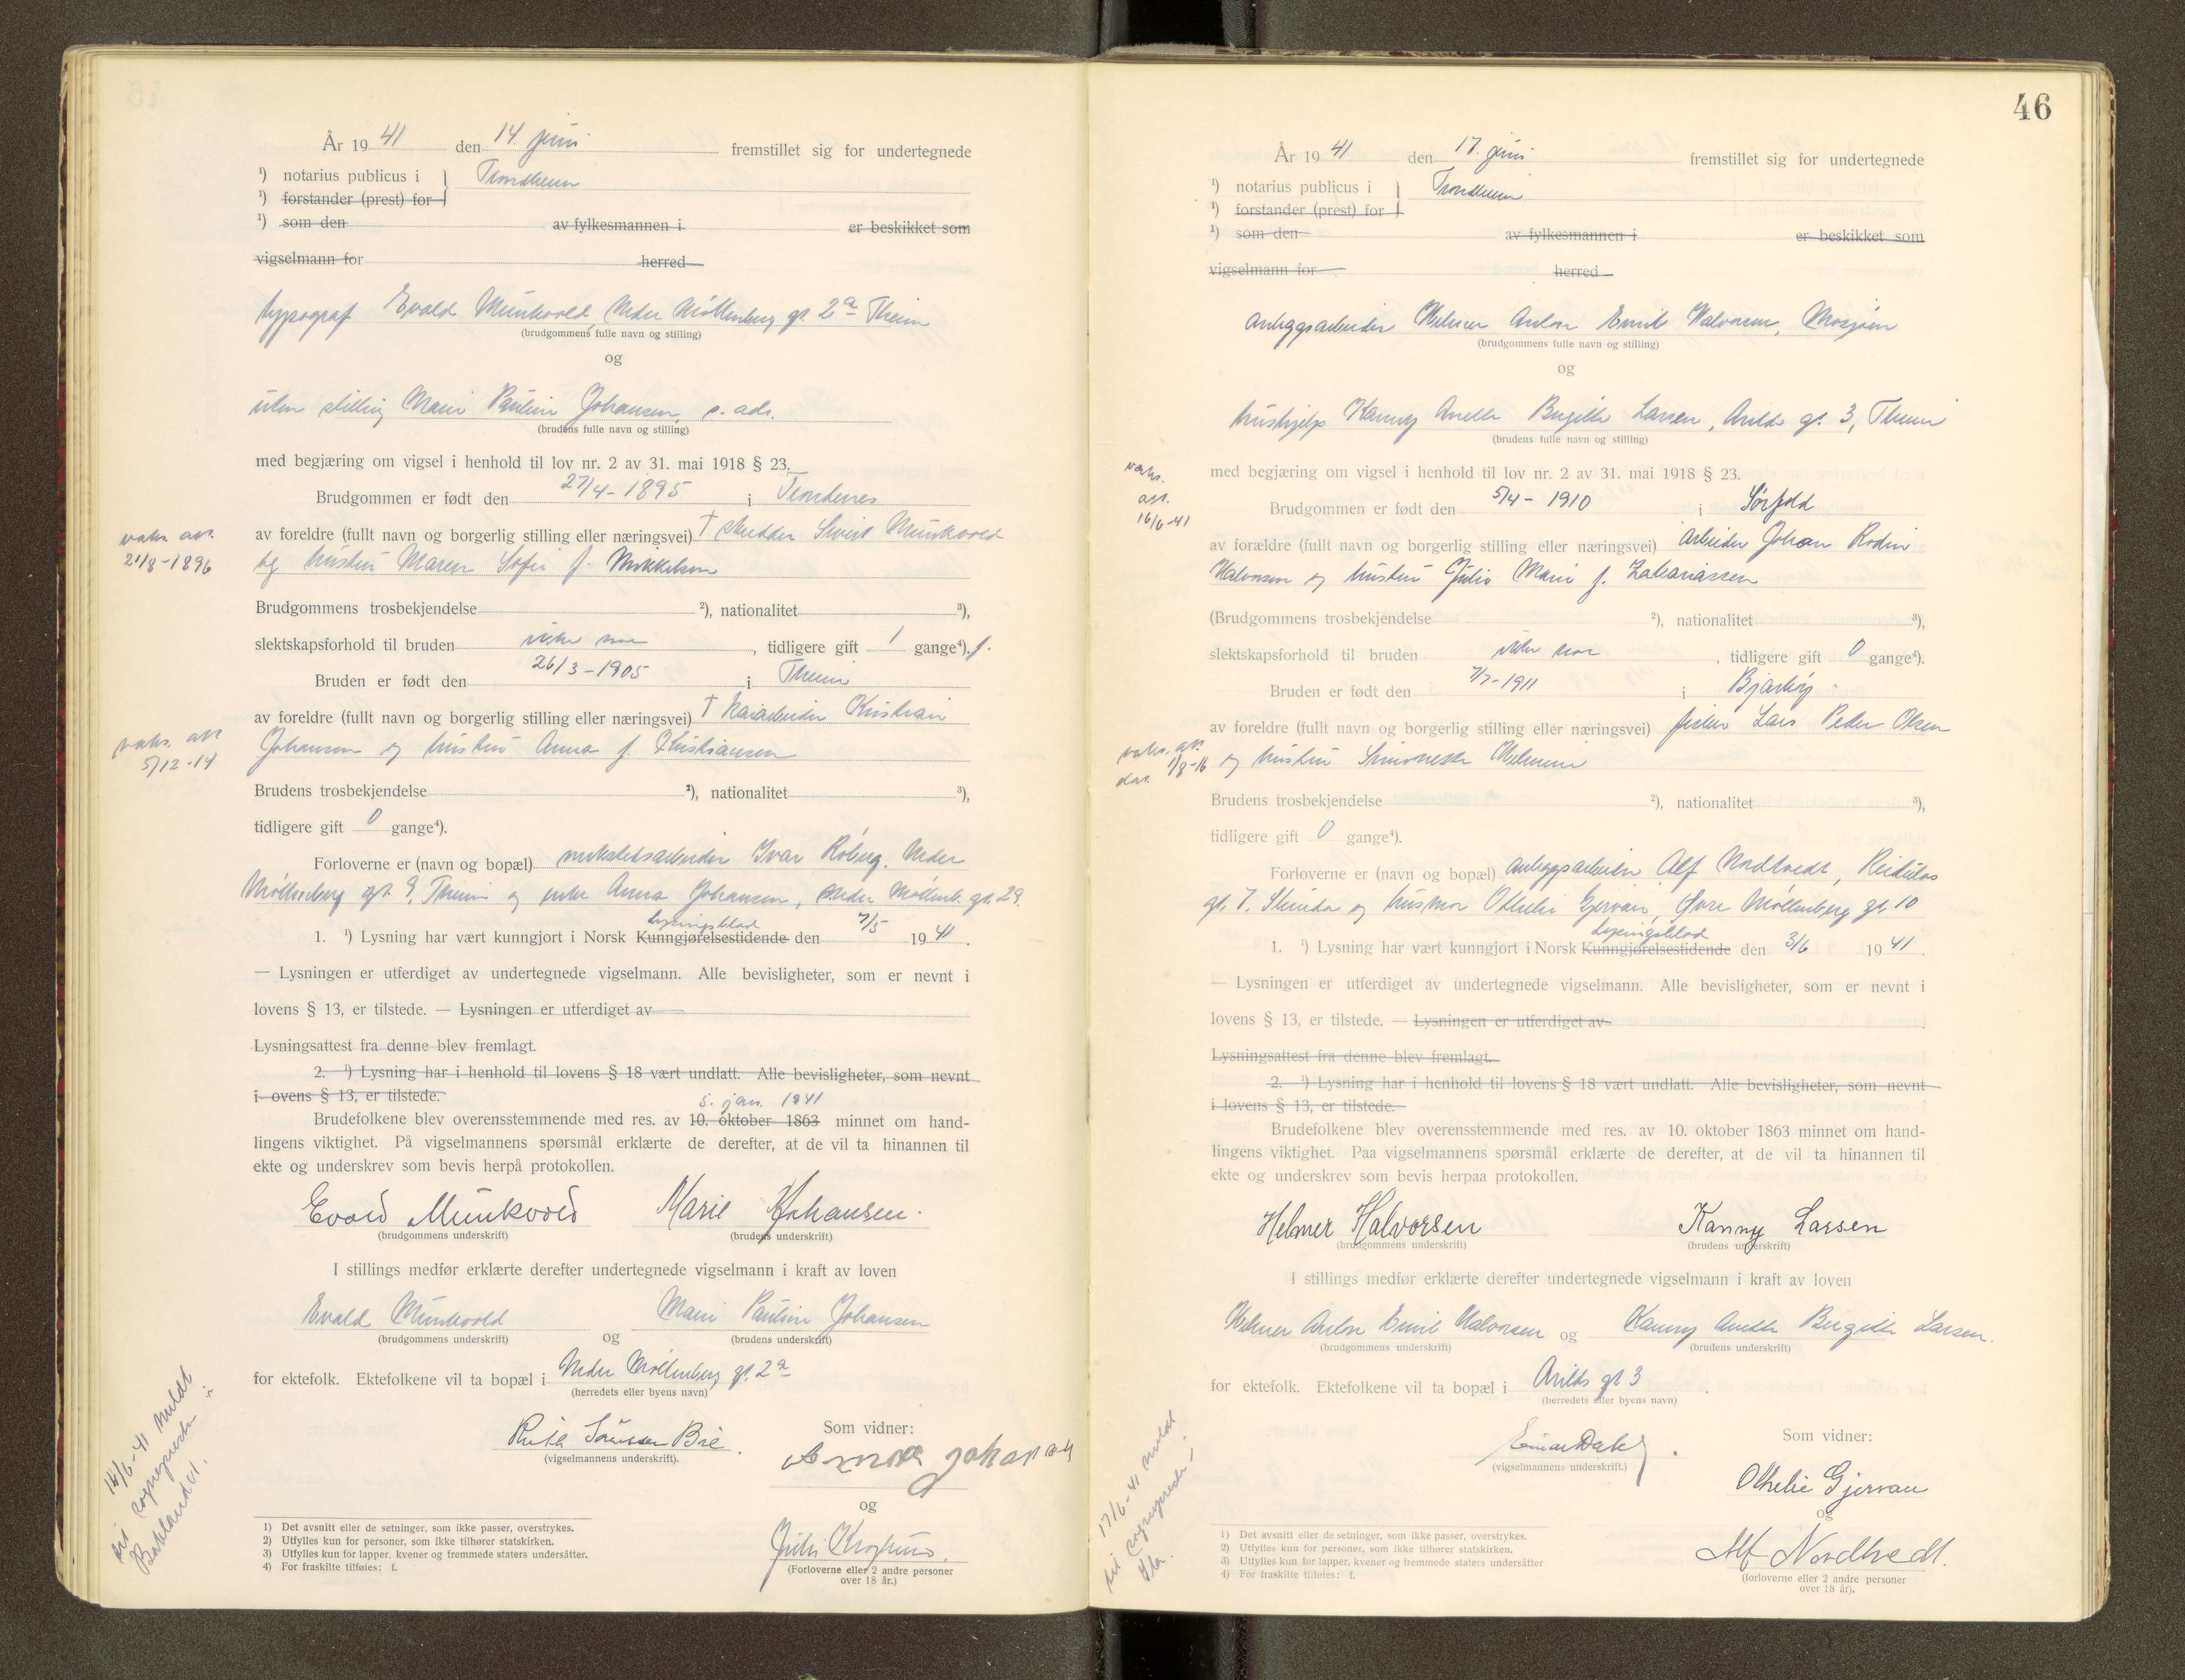 År 19 41 den 14. juni fremstillet sig for undertegnede
¹) notarius publicus i } Trondheim
¹) forstander (prest) for
¹) som den av fylkesmannen i er beskikket som
vigselmann for herred
typograf Evald Munkvold, Nedre Møllenberg gt. 2a Theim
(brudgommens fulle navn og stilling)
og
uten stilling Marie Pauline Johansen, s. adr.
(brudens fulle navn og stilling)
med begjæring om vigsel i henhold til lov nr. 2 av 31. mai 1918 § 23.
Brudgommen er født den 27/4 - 1895 i Trondenes
vaks. att.
21/8 - 1896
av foreldre (fullt navn og borgerlig stilling eller næringsvei) † skredder Sivert Munkvold
og hustru Maren Sofie f. Mikkelsen
Brudgommens trosbekjendelse ²), nationalitet ³),
slektskapsforhold til bruden ikke noe, tidligere gift 1 gange⁴). f.
Bruden er født den 26/3 - 1905 i Theim
av foreldre (fullt navn og borgerlig stilling eller næringsvei) † kaiarbeider Kristian
vaks. att.
5/12 - 14
Johansen og hustru Anna f. Kristiansen
Brudens trosbekjendelse ²), nationalitet ³),
tidligere gift 0 gange⁴).
Forloverne er (navn og bopæl) verkstedsarbeider Ivar Røberg, Nedre
Møllenberg gt. 9, Theim og enke Anna Johansen, Nedre Møllenb. gt. 29.
Lysningsblad
1. ¹) Lysning har vært kunngjort i Norsk Kunngjørelsestidende den 7/5 19 41.
— Lysningen er utferdiget av undertegnede vigselmann. Alle bevisligheter, som er nevnt i
lovens § 13, er tilstede. — Lysningen er utferdiget av
Lysningsattest fra denne blev fremlagt.
2. ¹) Lysning har i henhold til lovens § 18 vært undlatt. Alle bevisligheter, som nevnt
i ovens § 13, er tilstede.
5. jan. 1941
Brudefolkene blev overensstemmende med res. av 10. oktober 1863 minnet om hand-
lingens viktighet. På vigselmannens spørsmål erklærte de derefter, at de vil ta hinannen til
ekte og underskrev som bevis herpå protokollen.
Evald Munkvold Marie Johansen.
(brudgommens underskrift) (brudens underskrift)
I stillings medfør erklærte derefter undertegnede vigselmann i kraft av loven
Evald Munkvold og Marie Pauline Johansen
(brudgommens underskrift) (brudens underskrift)
for ektefolk. Ektefolkene vil ta bopæl i Nedre Møllenberg gt. 2a
(herredets eller byens navn)
Som vidner:
(vigselmannens underskrift).
Anna Johansen
og
(Forloverne eller 2 andre personer
over 18 år.)
14/6 - 41 meldt
til sognepresten i
Bakklandet.
1) Det avsnitt eller de setninger, som ikke passer, overstrykes.
2) Utfylles kun for personer, som ikke tilhører statskirken.
3) Utfylles kun for lapper, kvener og fremmede staters undersåtter.
4) For fraskilte tilføies: f.
46
År 19 41 den 17. juni fremstillet sig for undertegnede
¹) notarius publicus i } Trondheim
¹) forstander (prest) for
¹) som den av fylkesmannen i er beskikket som
vigselmann for herred
anleggsarbeider Helmer Anton Emil Halvorsen, Mosjøen
(brudgommens fulle navn og stilling)
og
hushjelp Kanny Anette Birgitte Larsen, Arilds gt. 3, Theim
(brudens fulle navn og stilling)
med begjæring om vigsel i henhold til lov nr. 2 av 31. mai 1918 § 23.
vaks.
att.
16/6-41
Brudgommen er født den 5/4 - 1910 i Sørfold
av forældre (fullt navn og borgerlig stilling eller næringsvei) Arbeider Johan Rodin
Halvorsen og hustru Julie Marie f. Zakariassen
(Brudgommens trosbekjendelse ²), nationalitet ³),
slektskapsforhold til bruden ikke noe, tidligere gift 0 gange⁴).
Bruden er født den 7/7 - 1911 i Bjarkøy
av foreldre (fullt navn og borgerlig stilling eller næringsvei) fisker Lars Peder Olsen
vaks. att.
dat. 1/8-16
og hustru Simonette Helmine
Brudens trosbekjendelse ²), nationalitet ³),
tidligere gift 0 gange⁴).
Forloverne er (navn og bopæl) anleggsarbeider Alf Nordtvedt, Reidulvs
gt. 7. Strinda og husmor Othelie Gjervan, Øvre Møllenberg gt. 10
Lysningsblad
1. ¹) Lysning har vært kunngjort i Norsk Kunngjørelsestidende den 3/6 19 41.
— Lysningen er utferdiget av undertegnede vigselmann. Alle bevisligheter, som er nevnt i
lovens § 13, er tilstede. — Lysningen er utferdiget av
Lysningsattest fra denne blev fremlagt.
2. ¹) Lysning har i henhold til lovens § 18 vært undlatt. Alle bevisligheter, som nevnt
i lovens § 13, er tilstede.
Brudefolkene blev overensstemmende med res. av 10. oktober 1863 minnet om hand-
lingens viktighet. Paa vigselmannens spørsmål erklærte de derefter, at de vil ta hinannen til
ekte og underskrev som bevis herpaa protokollen.
Helmer Halvorsen Kanny Larsen
(brudgommens underskrift) (brudens underskrift)
I stillings medfør erklærte derefter undertegnede vigselmann i kraft av loven
Helmer Anton Emil Halvorsen og Kanny Anette Birgitte Larsen.
(brudgommens underskrift) (brudens underskrift)
for ektefolk. Ektefolkene vil ta bopæl i Arilds gt 3
(herredets eller byens navn)
Einar Dahl. Som vidner:
(vigselmannens underskrift.)
Othelie Gjervan
og
Alf Nordtvedt.
(forloverne eller 2 andre personer
over 18 år).
17/6 - 41 meldt
til sognepresten i
Ila.
1) Det avsnitt eller de setninger, som ikke passer, overstrykes.
2) Utfylles kun for personer, som ikke tilhører statskirken.
3) Utfylles kun for lapper, kvener og fremmede staters undersåtter
4) For fraskilte tilføies: f.